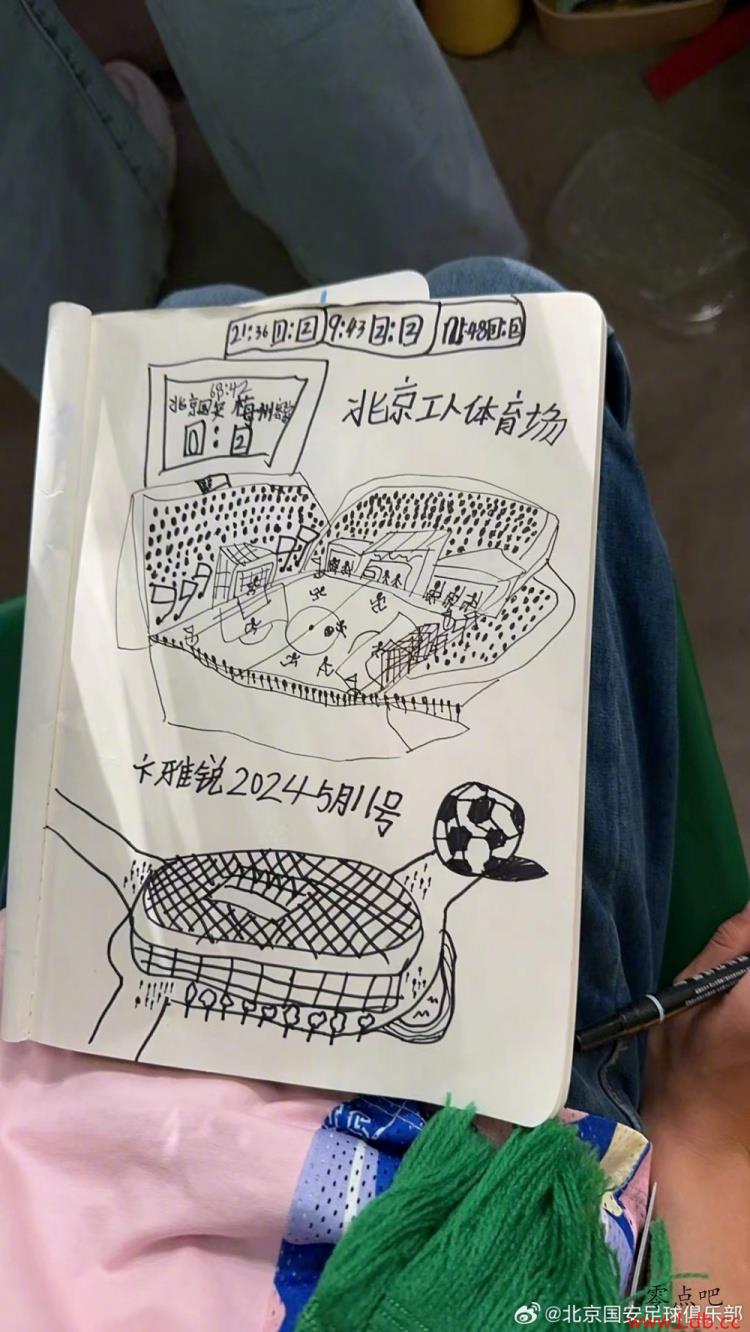 21:36 1:2 9:43 2:2
68:42
北京国安 梅州客家
0:2
北京工人体育场
卞雅锐2024 5月11号
零点吧
www.Ldb.cc
@北京国安足球俱乐部